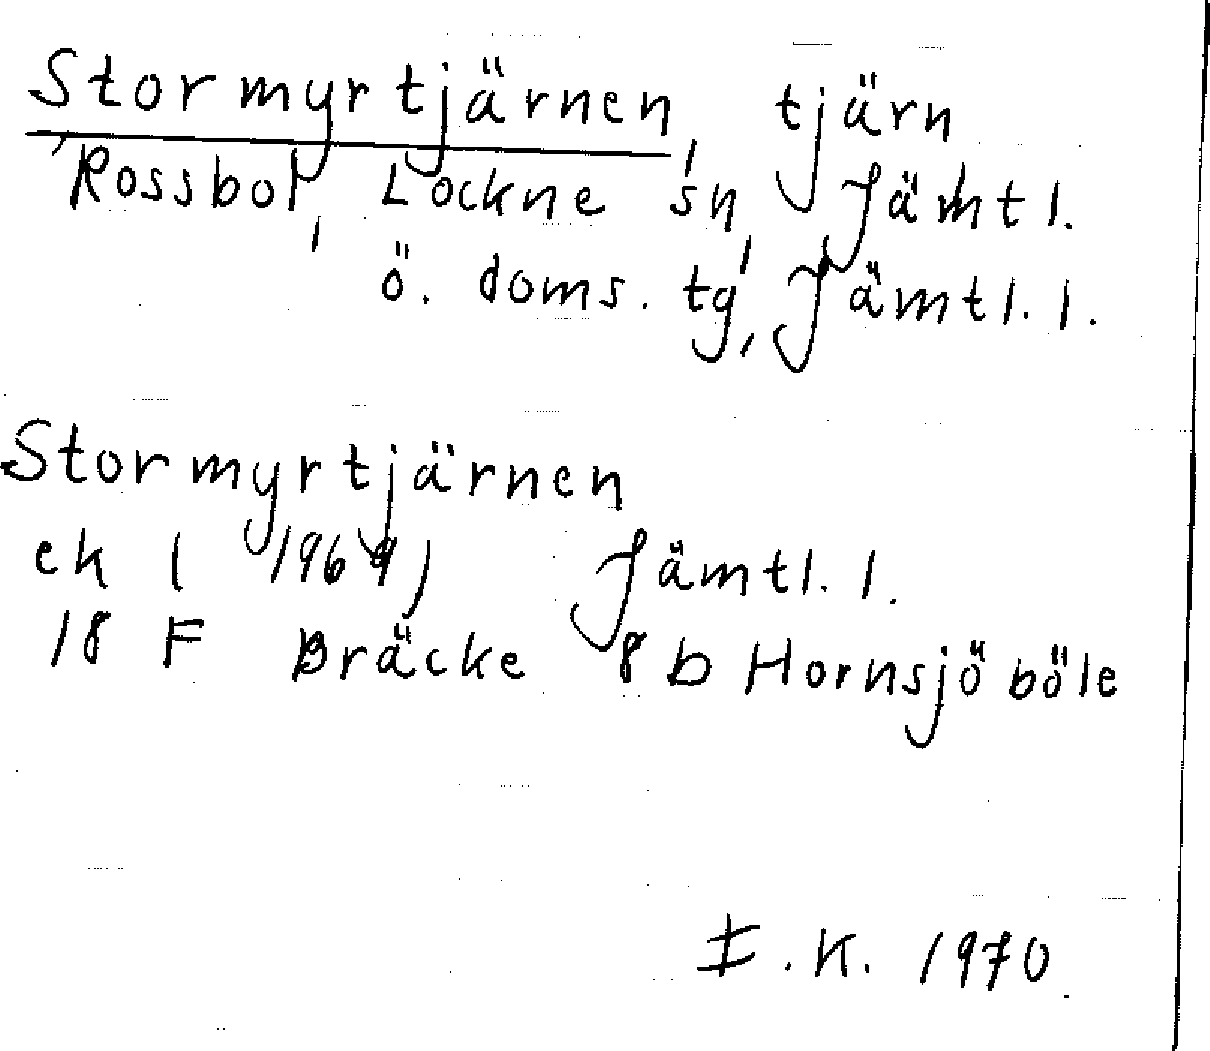 Stormyrtjärnen, tjärn
Rossbol, Lockne sn, Jämtl.
ö. doms. tg, Jämtl. l.
Stormyrtjärnen
ek (1969) Jämtl. l.
18 F Bräcke 8 b Hornsjöböle
I. K. 1970